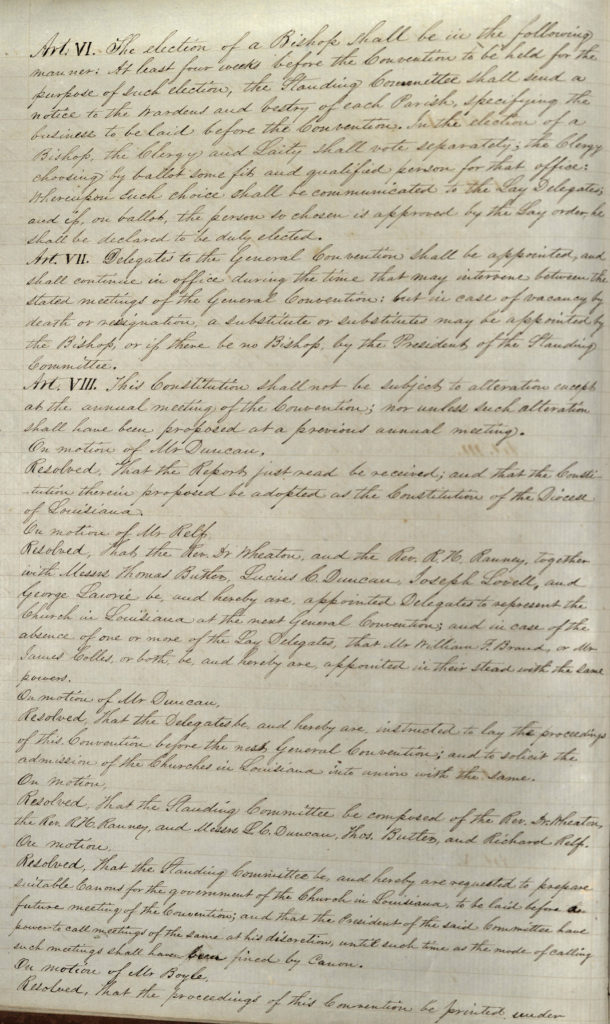 Art. VI. The election of a Bishop shall be in the following
manner: At least four weeks before the Convention to be held for the
purpose of such election, the Standing Committee shall send a
notice to the Wardens and vestry of each Parish, specifying the
business to be laid before the Convention. In the election of a
Bishop, the Clergy and Laity shall vote separately; the Clergy
choosing by ballot some fit and qualified person for that office:
Whereupon such choice shall be communicated to the Lay Delegates;
and if, on ballot, the person so chosen is approved by the Lay order, he
shall be declared to be duly elected.
Art. VII. Delegates to the General Convention shall be appointed, and
shall continue in office during the time that may intervene between the
stated meetings of the General Convention: but in case of vacancy by
death or resignation, a substitute or substitutes may be appointed by
the Bishop, or if there be no Bishop, by the President of the Standing
Committee.
Art. VIII. This Constitution shall not be subject to alteration except
at the annual meeting of the Convention; nor unless such alteration
shall have been proposed at a previous annual meeting.
On motion of Mr Duncan.
Resolved, That the Report just read be received; and that the Consti-
tution therein proposed be adopted as the Constitution of the Diocese
of Louisiana.
On motion of Mr Relf.
Resolved, That the Rev. Dr Wheaton, and the Rev. R. H. Ranney, together
with Messrs Thomas Butler, Lucius C. Duncan, Joseph Lovell, and
George Lawrie be, and hereby are, appointed Delegates to represent the
Church in Louisiana at the next General Convention; and in case of the
absence of one or more of the Lay Delegates, that Mr William F. Brand, or Mr
James Colles, or both, be, and hereby are, appointed in their stead with the same
powers.
On motion of Mr Duncan,
Resolved, That the Delegates be, and hereby are, instructed to lay the proceedings
of this Convention before the next General Convention; and to solicit the
admission of the Churches in Louisiana into union with the same.
On motion,
Resolved, That the Standing Committee be composed of the Rev. Dr. Wheaton,
the Rev. R. H. Ranney, and Messrs L. C. Duncan, Thos. Butler, and Richard Relf.
On motion,
Resolved, That the Standing Committee be, and hereby are requested to prepare
suitable Canons for the government of the Church in Louisiana, to be laid before a
future meeting of the Convention; and that the President of the said Committee have
power to call meetings of the same at his discretion, until such time as the mode of calling
such meetings shall have been fixed by Canon.
On motion of Mr Boyle,
Resolved, That the proceedings of this Convention be printed under